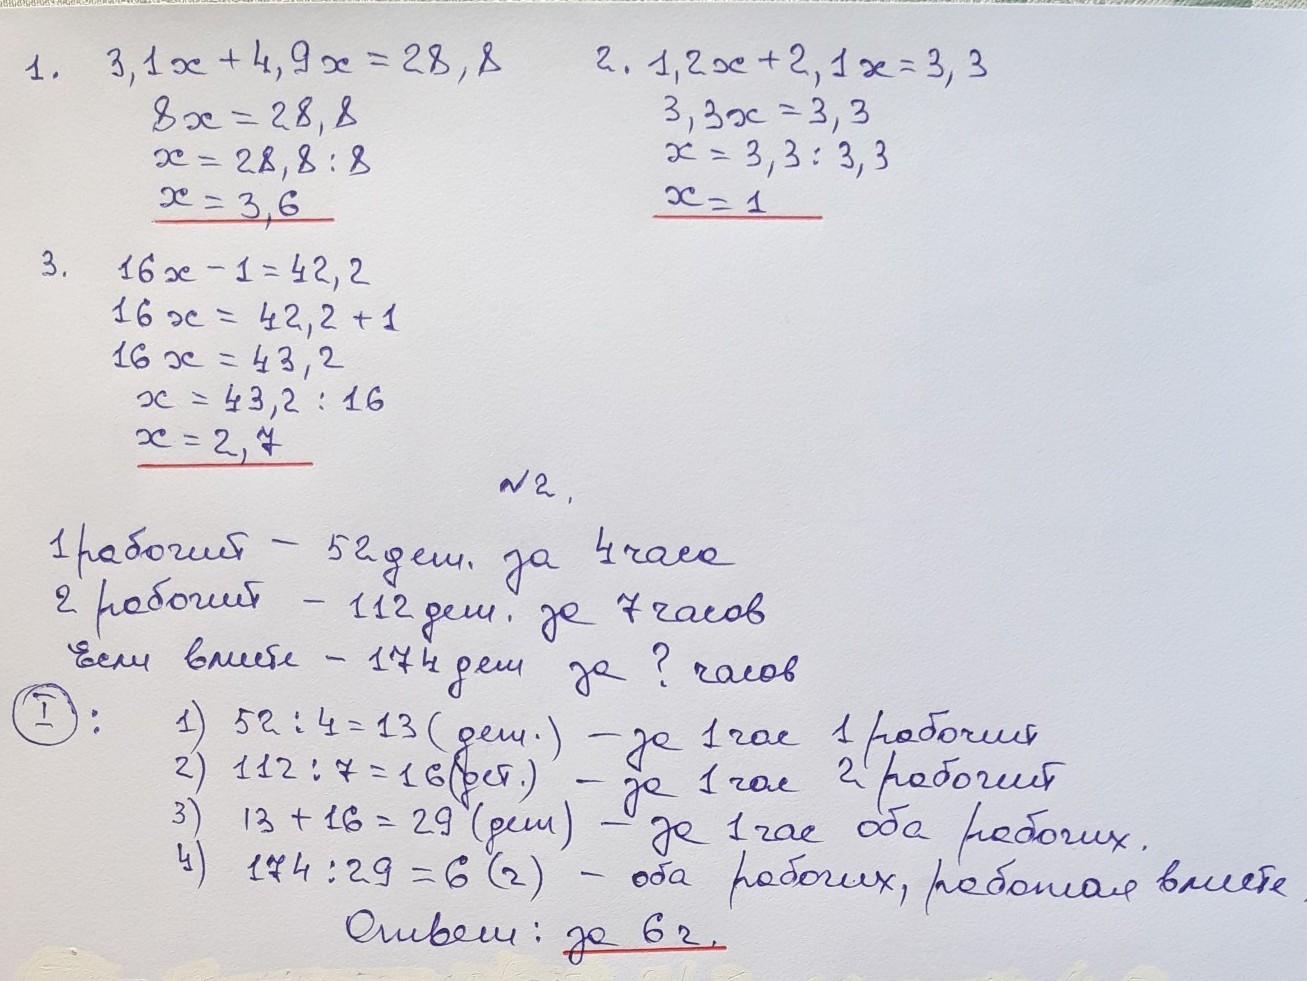 1. 3,1x + 4,9x = 28,8
8x = 28,8
x = 28,8 : 8
x = 3,6
2. 1,2x + 2,1x = 3,3
3,3x = 3,3
x = 3,3 : 3,3
x = 1
3. 16x - 1 = 42,2
16x = 42,2 + 1
16x = 43,2
x = 43,2 : 16
x = 2,7
N2.
1 рабочий – 52 дет. за 4 часа
2 рабочий – 112 дет. за 7 часов
Если вместе – 174 дет за ? часов
I : 1) 52 : 4 = 13 (дет.) – за 1 час 1 рабочий
2) 112 : 7 = 16 (дет.) – за 1 час 2 рабочий
3) 13 + 16 = 29 (дет) – за 1 час оба рабочих.
4) 174 : 29 = 6 (ч) – оба рабочих, работая вместе.
Ответ: за 6 ч.